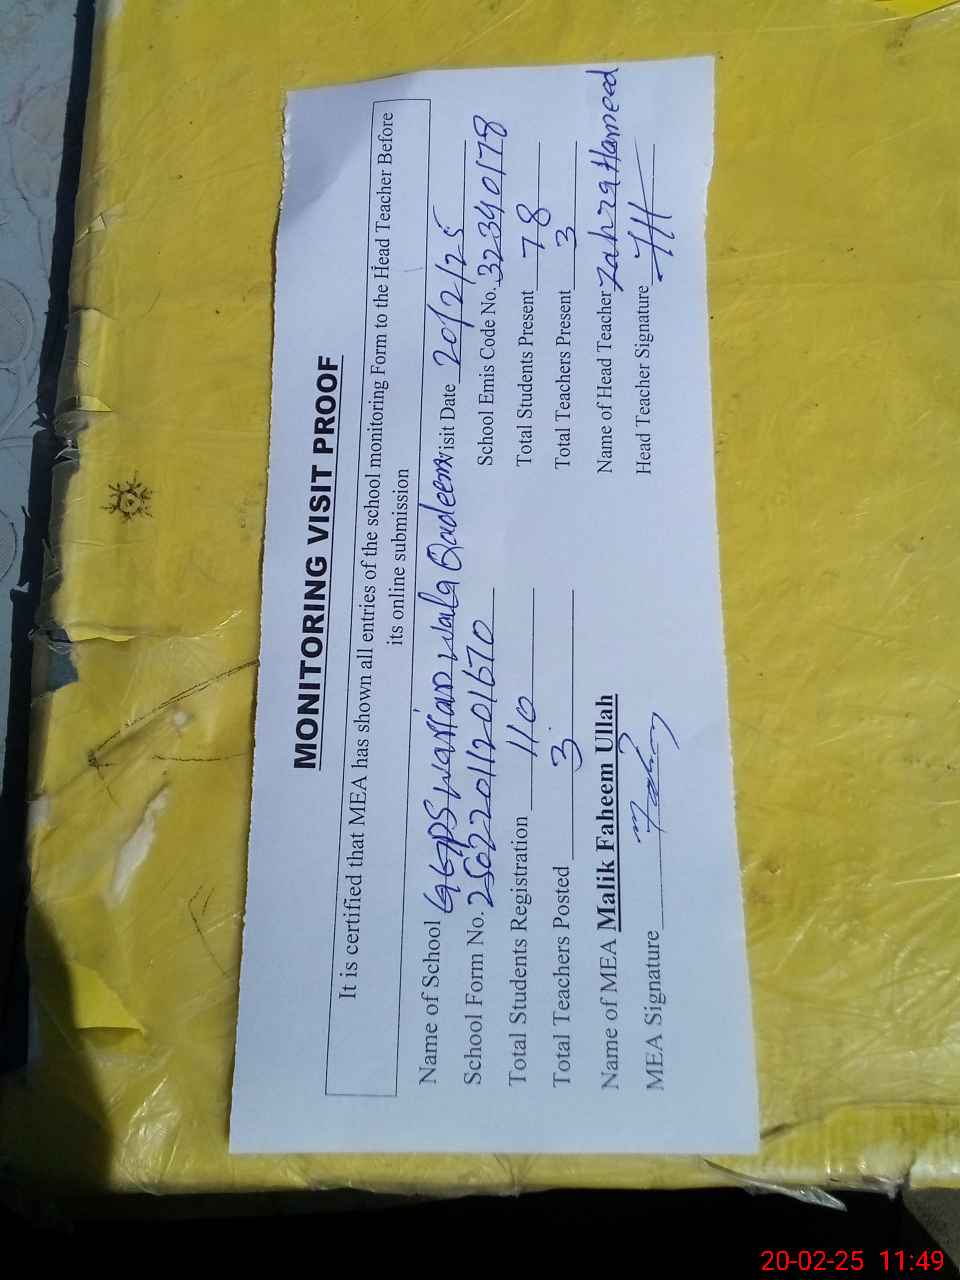 MONITORING VISIT PROOF
It is certified that MEA has shown all entries of the school monitoring Form to the Head Teacher Before
its online submission
Name of School GGPS Warian Wala Qadeem Visit Date 20/2/25
School Form No. 25022011201670 School Emis Code No. 32340178
Total Students Registration 110 Total Students Present 78
Total Teachers Posted 3 Total Teachers Present 3
Name of MEA Malik Faheem Ullah Name of Head Teacher Zahra Hameed
MEA Signature Head Teacher Signature ZH
20-02-25 11:49